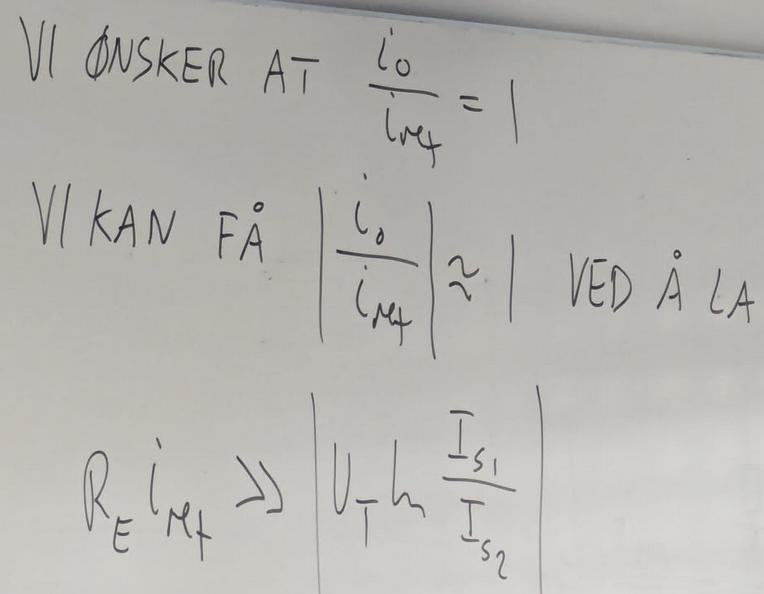 VI ØNSKER AT i_o / i_ref = 1
VI KAN FÅ | i_o / i_ref | ≈ 1 VED Å LA
R_E i_ref >> | U_T ln I_S1 / I_S2 |